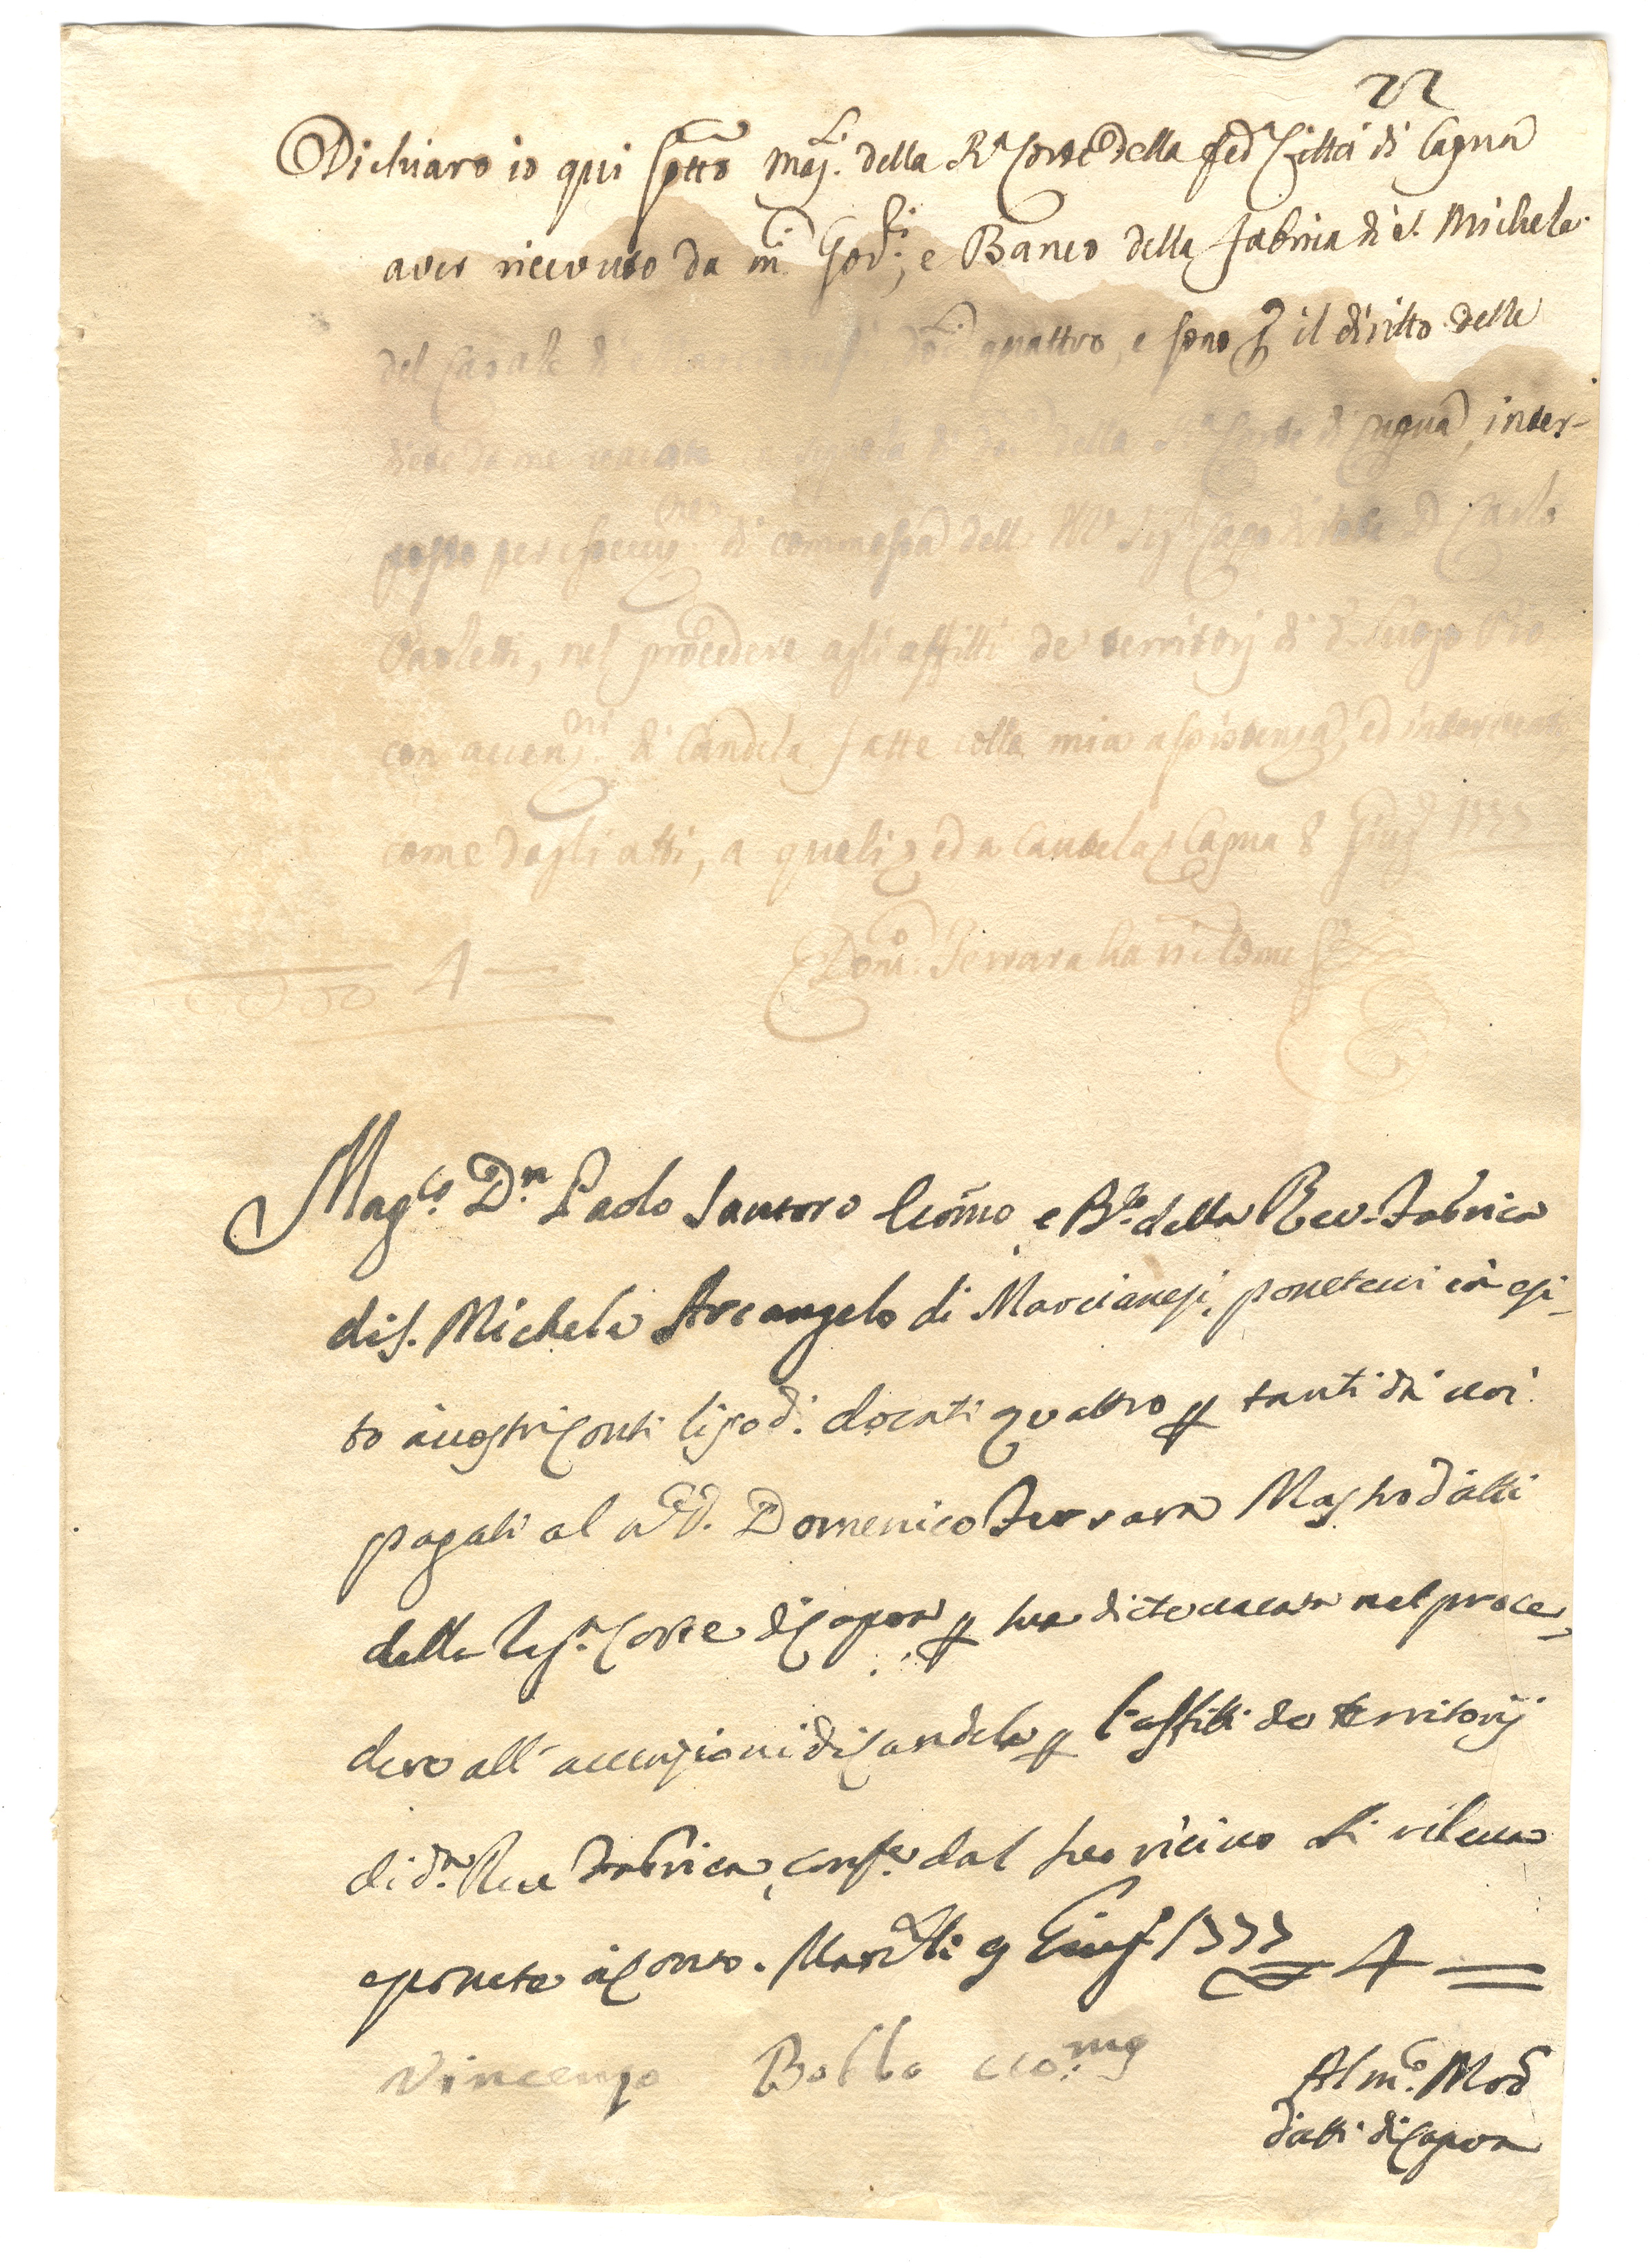 22
Dichiaro io qui sotto Maj. della R.a Corte della fed.a Città di Capua
aver ricevuto da m.ci Gov.ri, e Banco della fabrica di S. Michele
del Casale di quattro, e sono p il diritto delle
diete da me della Corte di Capua, inter-
posto per di commessa dell' Ill.e Sig.r D Carlo
Paoletti, nel procedere agli affitti de' territorj di d.o Luogo Pio
con accen.ni di Candela fatte colla mia assistenza, ed
come dagli atti, a quali ed a cautela Capua 8 Giug.o 1777
4 Dom.o Ferrara ha ric.to come s.a
Mag.co D.n Paolo Santoro Ecōmo, e B.o della Rev. Fabrica
di S. Michele Arcangelo di Marcianesi, ponetevi in esi-
to a vostri Conti docati quattro p tanti da voi
pagati al D. Domenico Ferrara Mastrodatti
della Reg.a Corte di Capua p sue diete vacate nel proce-
dere all' accenzioni di Candela p l' affitti de territorij
di d.a Rev Fabrica, conf.e dal suo ricivo si rileva
e ponete a Conto. Marc.si li 9 Giug.o 1777 4
Vincenzo Bobbo
Al m.co Mod
d'atti di Capua